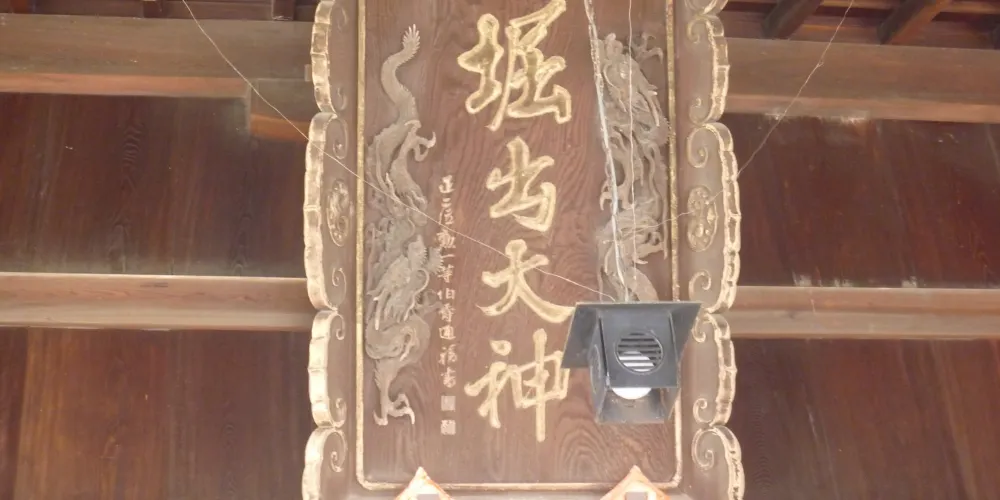 堀出大神
正二位勲一等伯爵通禧書